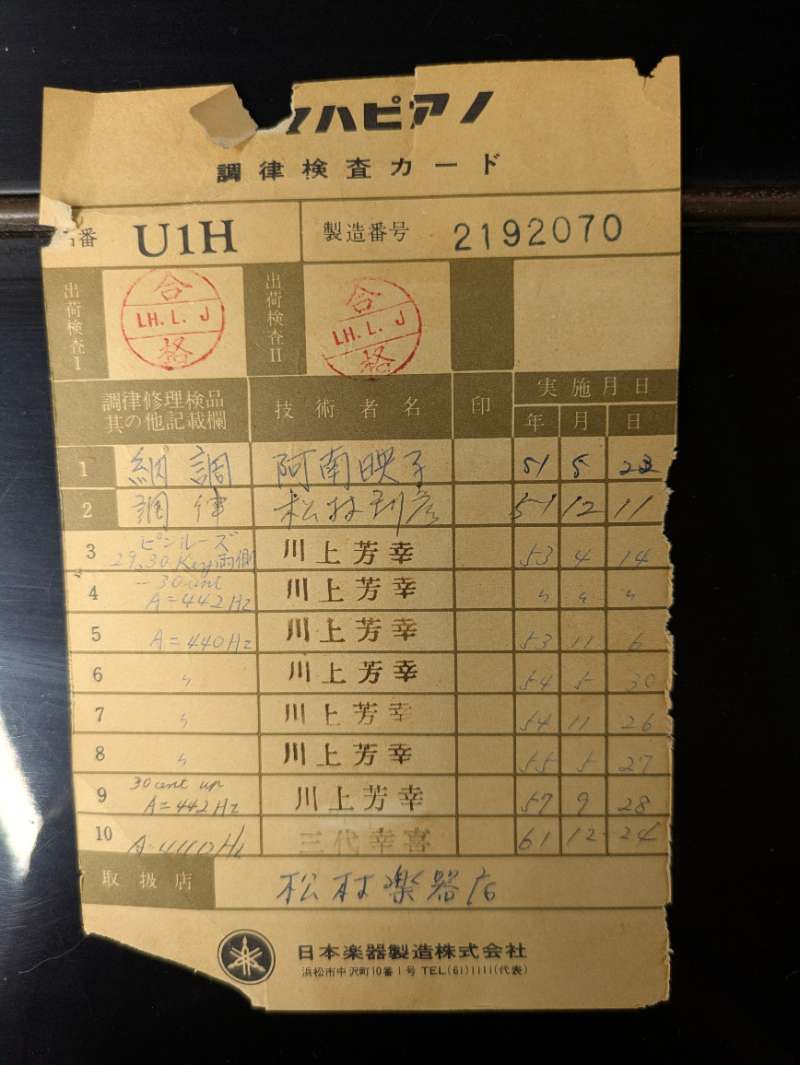 マハピアノ
調律検査カード
番 U1H 製造番号 2192070
出荷検査I 合 LH. L. J 格 出荷検査II 合 LH. L. J 格
調律修理検品 其の他記載欄 技術者名 印 実施月日 年 月 日
1 調 阿南映子 51 5 23
2 調律 松林 51 12 11
3 ピンルーズ 29.30 Key両側 川上芳幸 53 4 14
4 -30cent A=442Hz 川上芳幸 〃 〃 〃
5 A=440Hz 川上芳幸 53 11 6
6 〃 川上芳幸 54 5 30
7 〃 川上芳幸 54 11 26
8 〃 川上芳幸 55 5 27
9 30cent up A=442Hz 川上芳幸 57 9 28
10 三代幸喜 61 12 24
取扱店 松林楽器店
日本楽器製造株式会社
浜松市中沢町10番1号 TEL(61)1111(代表)